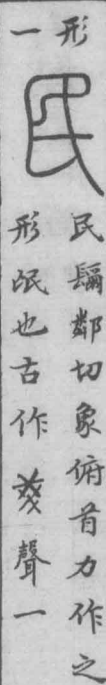 形
一
民
民镾鄰切象俯首力作之
形氓也古作聲一